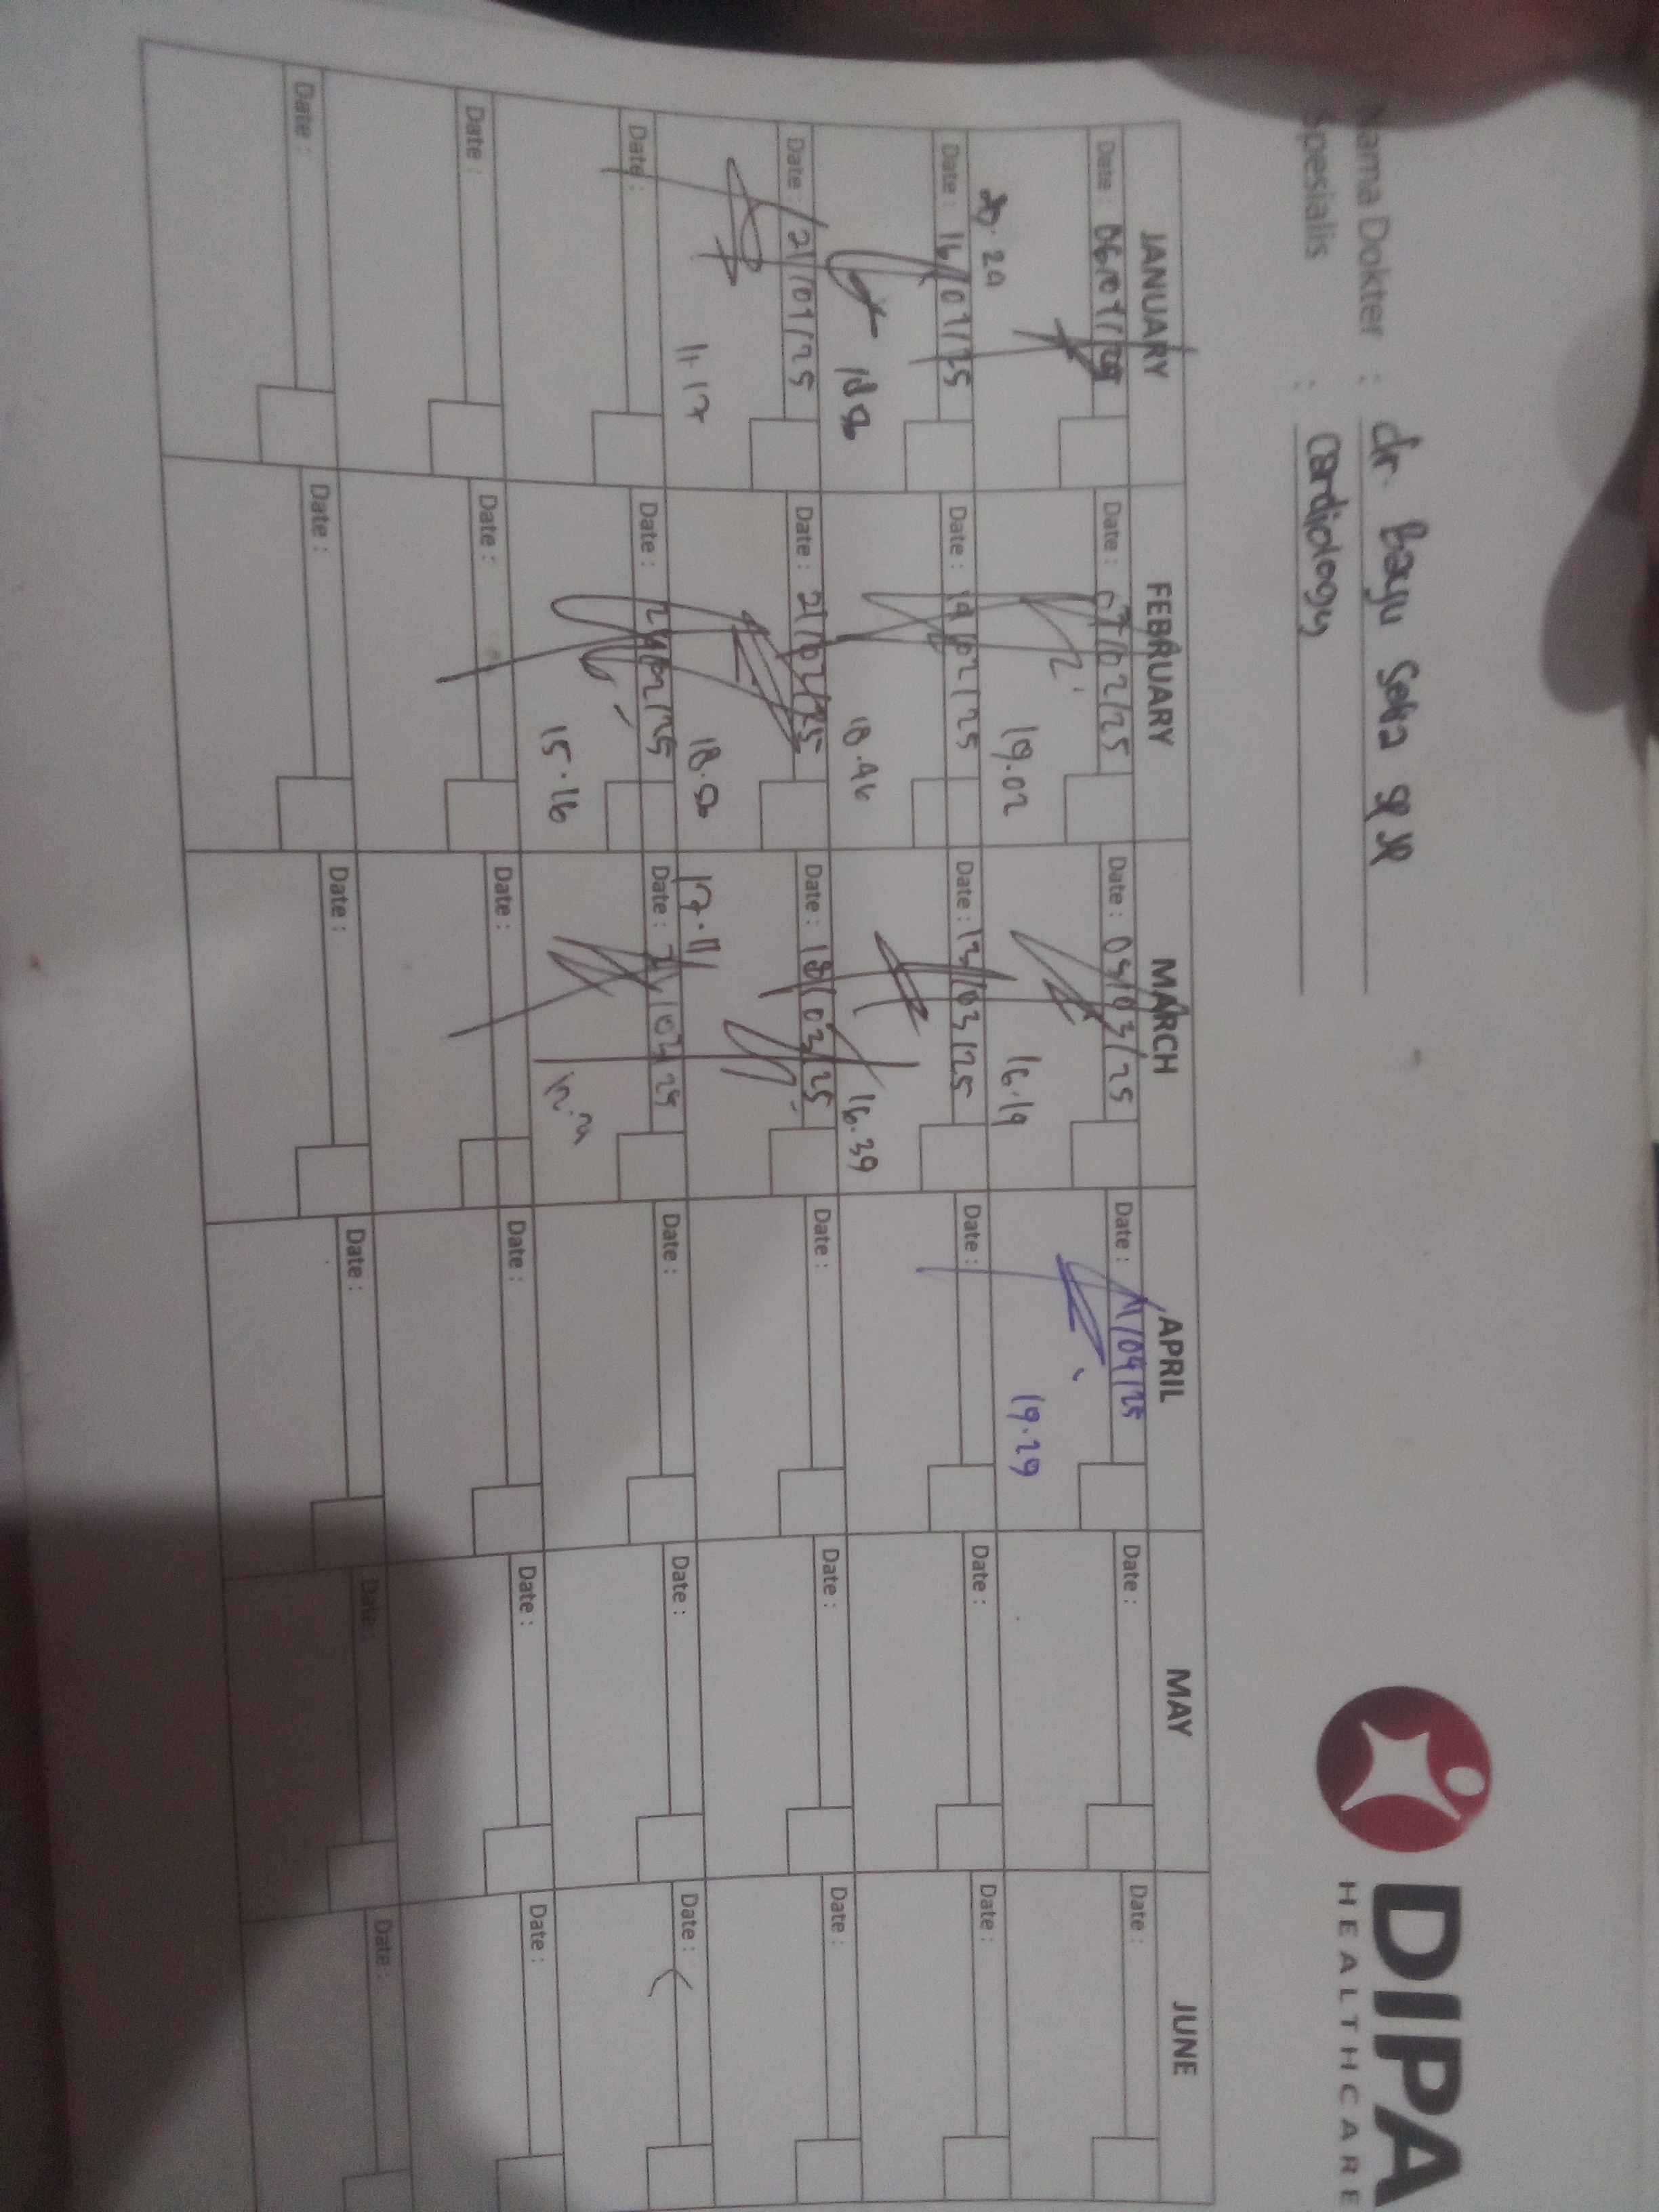 DIPA
HEALTHCARE
Nama Dokter : dr. Bayu Setia SP JP
Spesialis : Cardiology
JANUARY FEBRUARY MARCH APRIL MAY JUNE
Date : 06/01/25 Date : 07/02/25 Date : 05/03/25 Date : 11/04/25 Date : Date :
20.20 19.02 16.19 19.29
Date : 16/01/25 Date : 14/02/25 Date : 13/03/25 Date : Date : Date :
18.46 16.39
Date : 21/01/25 Date : 21/02/25 Date : 18/03/25 Date : Date : Date :
17.17 18.50 17.11
Date : Date : 24/02/25 Date : /03/25 Date : Date : Date :
15.16
Date : Date : Date : Date : Date : Date :
Date : Date : Date : Date : Date : Date :